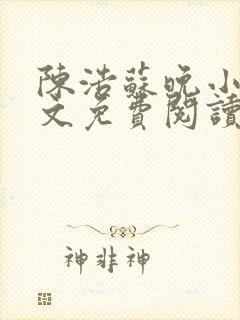 陳浩蘇晚小
文免費閱讀
神非神